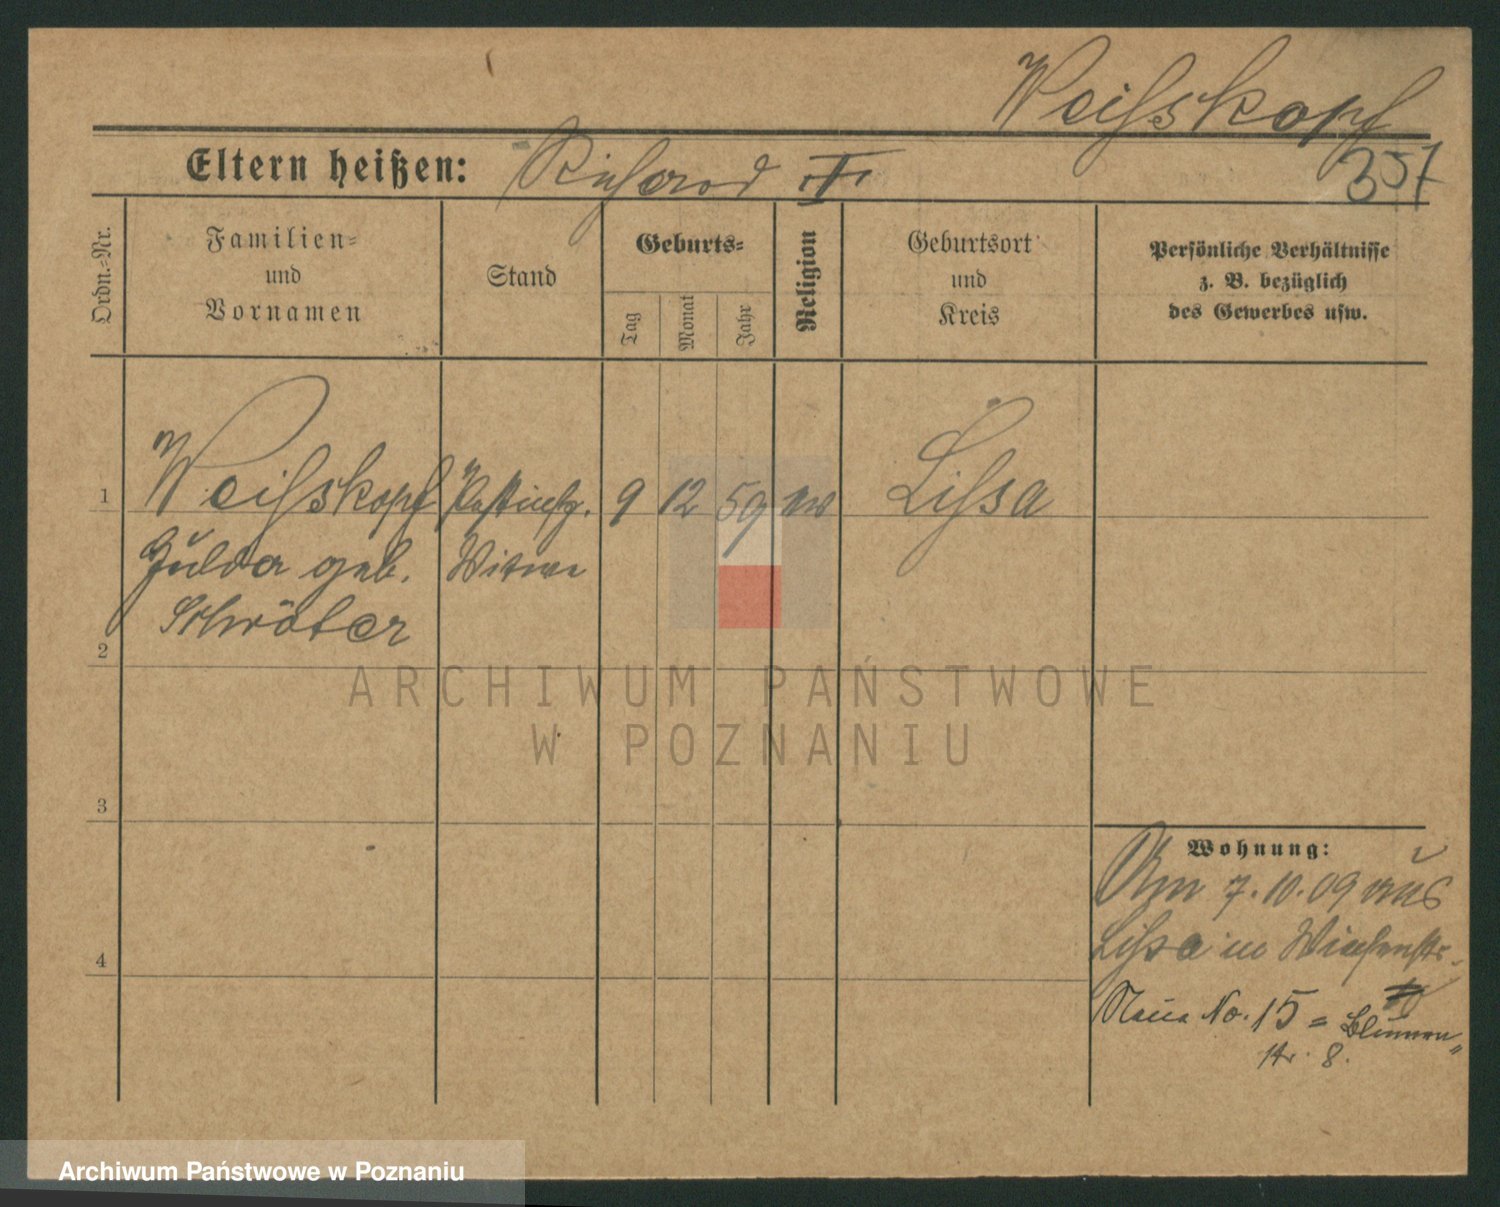 Weißkopf
Eltern heißen: Richard II.
357
Ordn.=Nr.
Familien=
und
Vornamen
Stand
Geburts=
Tag
Monat
Jahr
Religion
Geburtsort
und
Kreis
Persönliche Verhältnisse
z. B. bezüglich
des Gewerbes usw.
1
Weißkopf
9 12 59 ev
Lissa
Hulda geb.
Witwe
Schröter
2
3
4
Wohnung:
Am 7.10.09 aus
Lissa in
Neue No. 15 = Blumen"
str. 8.
ARCHIWUM PAŃSTWOWE
W POZNANIU
Archiwum Państwowe w Poznaniu